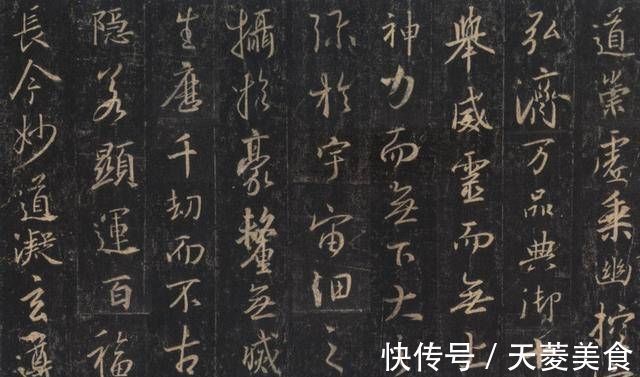 道崇虛乘幽控
弘濟万品典御十
舉威靈而無上
神力而無下大
弥於宇宙細之
攝於豪釐無滅
生歷千劫而不古
隱若顯運百福
長今妙道凝玄遵
快传号 / 天菱美食